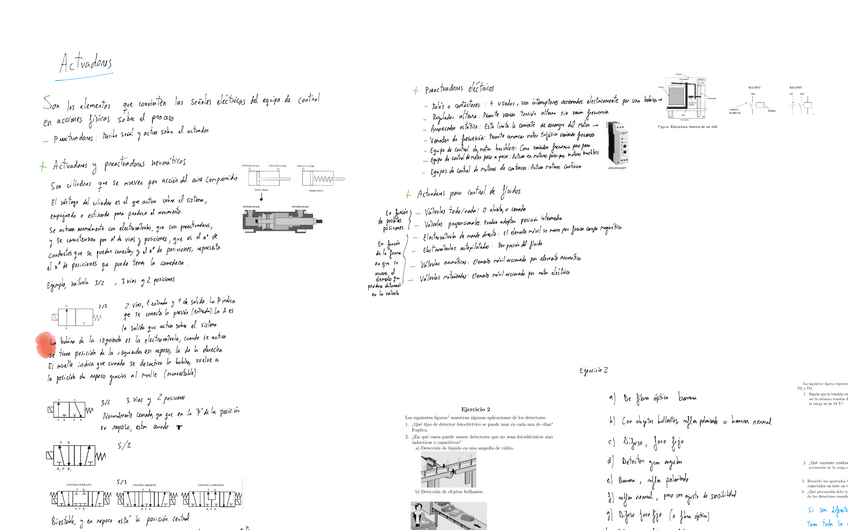 Actuadores
Son los elementos que convierten las señales eléctricas del equipo de control
en acciones físicas sobre el proceso
- Preactuadores: Recibe señal y actua sobre el actuador
+ Actuadores y preactuadores neumáticos
Son cilindros que se mueven por acción del aire comprimido
El vástago del cilindro es el que actua sobre el sistema,
empujando o estirando para producir el movimiento.
Se activan normalmente con electroválvulas, que son preactuadores,
y se caracterizan por nº de vías y posiciones, que es el nº de
que se pueden conectar, y el nº de posiciones, representa
el nº de posiciones que puede tener la corredera.
Ejemplo, valvula 3/2, 3 vías y 2 posiciones
2/2
2 vías, 1 entrada y 1 de salida. La P indica
que se conecta la presión (entrada) La A es
la salida que actua sobre el sistema
La bobina de la izquierda es la electroválvula, cuando se activa
se tiene posición de la izquierda en reposo, la de la derecha
El muelle indica que cuando se desactiva la bobina, vuelve a
la posición de reposo gracias al muelle (monoestable)
3/2 3 vías y 2 posiciones
Normalmente cerrada, ya que en la de la posición
en reposo, esta cerrada
5/2
5/3
Biestable, y en reposo está la posición central
+ Preactuadores eléctricos
- Relés o contactores: + usados, son interruptores accionados electricamente por una bobina
- Regulador alterna: Permite variar tensión alterna sin variar frecuencia
- Arrancador estático: Este limita la corriente de arranque del motor
- Variador de frecuencia: Permite arrancar motor trifásico variando frecuencia
- Equipo de control de motor brushless: Como variador frecuencia pero para
- Equipo de control de motor paso a paso: Actuan en motores paso que motores brushless
- Equipos de control de motores de continua: Actua motores continua
Figura: Estructura interna de un relé
+ Actuadores para control de fluidos
En función
de posibles
posiciones
- Válvulas todo/nada: O abierta, o cerrada
- Válvulas proporcionales: Pueden adoptar posición intermedia
En función
de la forma
en que se
mueve el
elemento que
en la válvula
- Electroválvula de mando directo: El elemento móvil se mueve por fuerza campo magnético
- Electroválvulas autopilotadas: Por presión del fluido
- Válvulas neumáticas: Elemento móvil accionado por elemento neumático
- Válvulas motorizadas: Elemento móvil accionado por motor eléctrico
Ejercicio 2
Las siguientes figuras muestran algunas aplicaciones de los detectores.
1. ¿Qué tipo de detector fotoeléctrico se puede usar en cada una de ellas?
Explica.
2. ¿En qué casos puede usarse detectores que no sean fotoeléctricos sino
inductivos o capacitivos?
a) Detección de líquido en una ampolla de vidrio.
b) Detección de objetos brillantes.
Ejercicio 2
a) De fibra óptica barrera
b) Con objetos brillantes, reflex polarizado o barrera normal
c) Difuso, foco fijo
d) Detector gran angular
e) Barrera, reflex polarizado
f) reflex normal, pero con ajuste de sensibilidad
g) Difuso foco fijo (o fibra óptica)